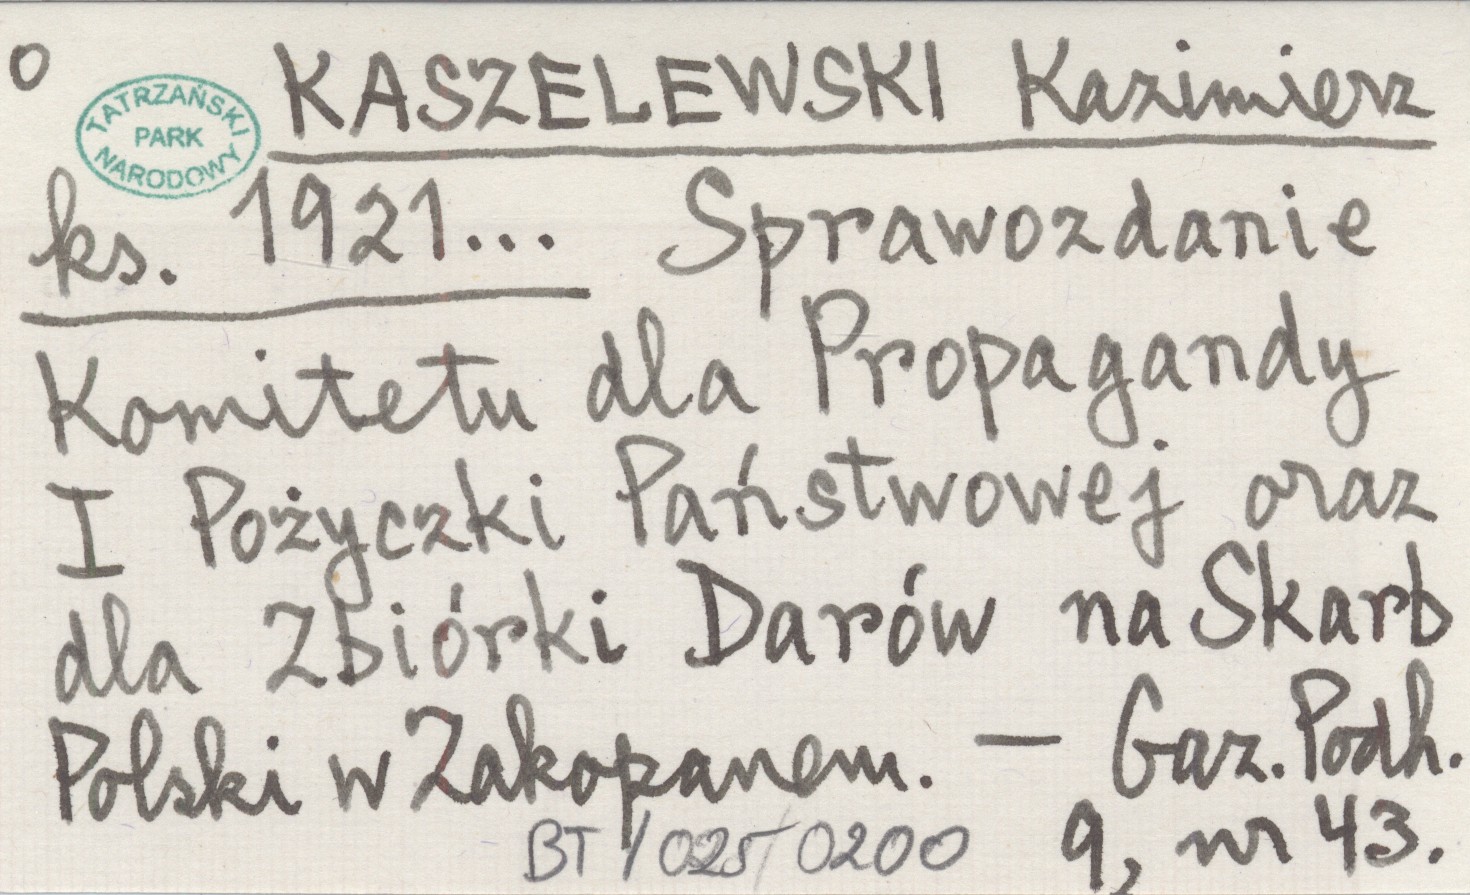 o
TATRZAŃSKI
PARK
NARODOWY
KASZELEWSKI Kazimierz
ks. 1921... Sprawozdanie
Komitetu dla Propagandy
I Pożyczki Państwowej oraz
dla Zbiórki Darów na Skarb
Polski w Zakopanem. — Gaz. Podh.
9, nr 43.
BT/025/0200